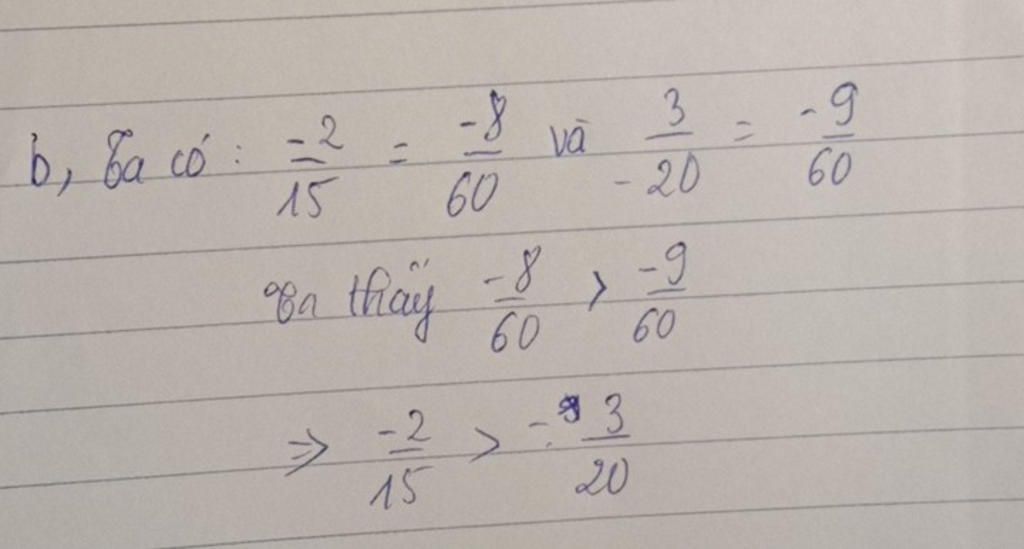 b, Ta có: -2/15 = -8/60 và 3/-20 = -9/60
Ta thấy -8/60 > -9/60
⇒ -2/15 > -3/20